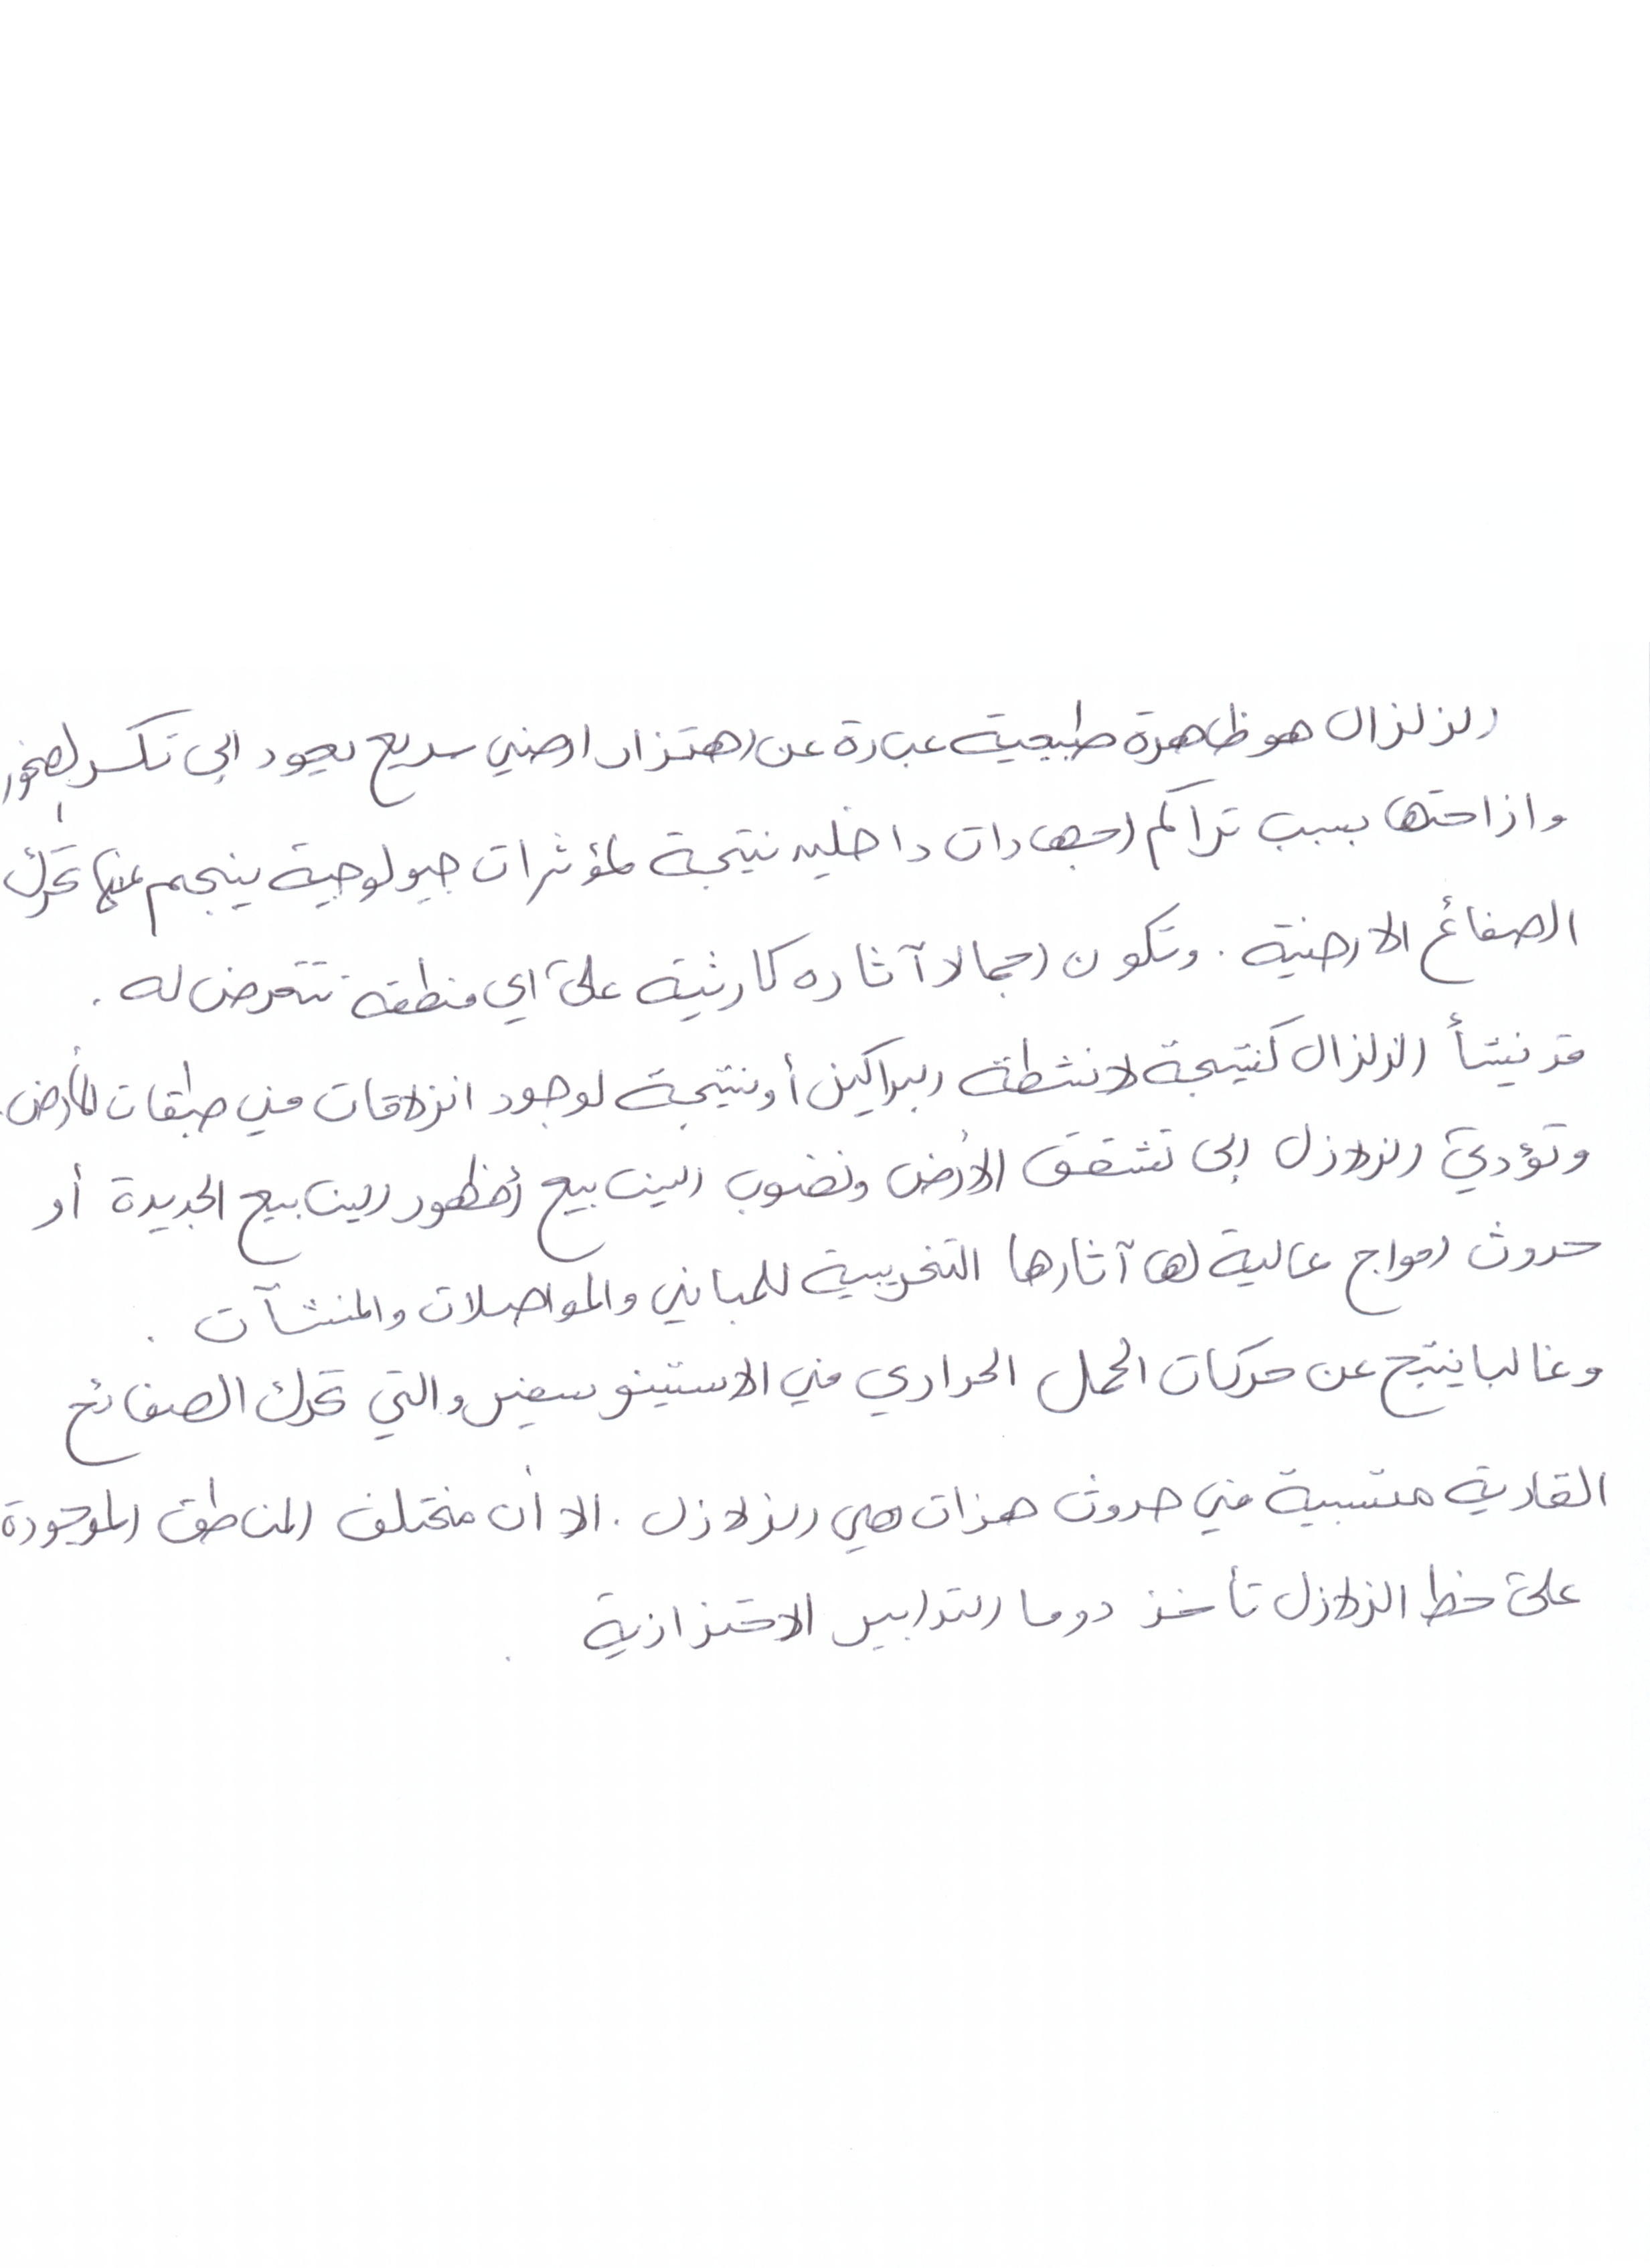 الزلزال هو ظاهرة طبيعية عبارة عن اهتزاز ارضي سريع يعود الى تكسر الصخور
وازاحتها بسبب تراكم اجهادات داخليه نتيجة لمؤثرات جيولوجية ينجم عنها تحرك
الصفائح الارضية . وتكون اجمالا آثاره كارثية على اي منطقة تتعرض له .
قد ينشأ الزلزال كنتيجة لانشطة البراكين أو نتيجة لوجود انزلاقات في طبقات الأرض .
وتؤدي الزلازل الى تشقق الأرض ونضوب الينابيع أو ظهور الينابيع الجديدة أو
حدوث امواج عالية لها آثارها التخريبية للمباني والمواصلات والمنشآت .
وغالبا ينتج عن حركات الحمل الحراري في الاستينوسفير والتي تحرك الصفائح
القارية متسببة في حدوث هزات هي الزلازل . الا أن مختلف المناطق الموجودة
على خط الزلازل تأخذ دوما التدابير الاحترازية .